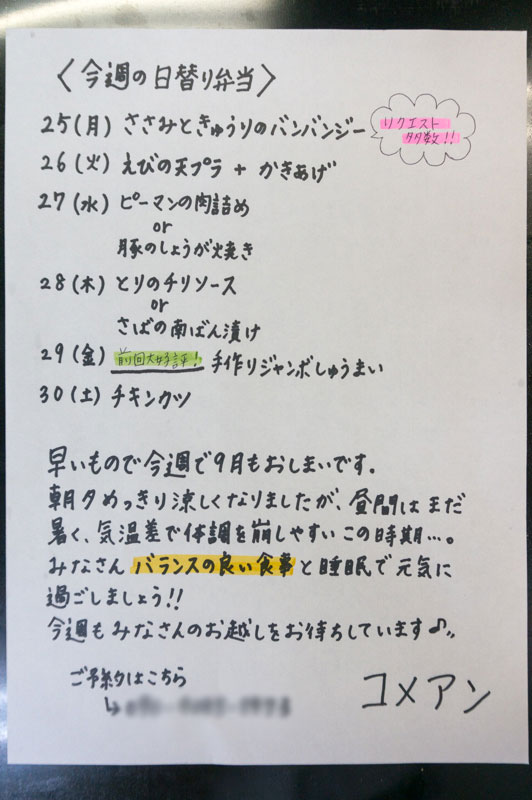 〈今週の日替り弁当〉
25(月) ささみときゅうりのバンバンジー
リクエスト
多数!!
26(火) えびの天プラ + かきあげ
27(水) ピーマンの肉詰め
or
豚のしょうが焼き
28(木) とりのチリソース
or
さばの南ばん漬け
29(金) 前回大好評! 手作りジャンボしゅうまい
30(土) チキンカツ
早いもので今週で9月もおしまいです。
朝夕めっきり涼しくなりましたが、昼間はまだ
暑く、気温差で体調を崩しやすいこの時期…。
みなさん バランスの良い食事と睡眠で元気に
過ごしましょう!!
今週もみなさんのお越しをお待ちしています♪
ご予約はこちら
コメアン